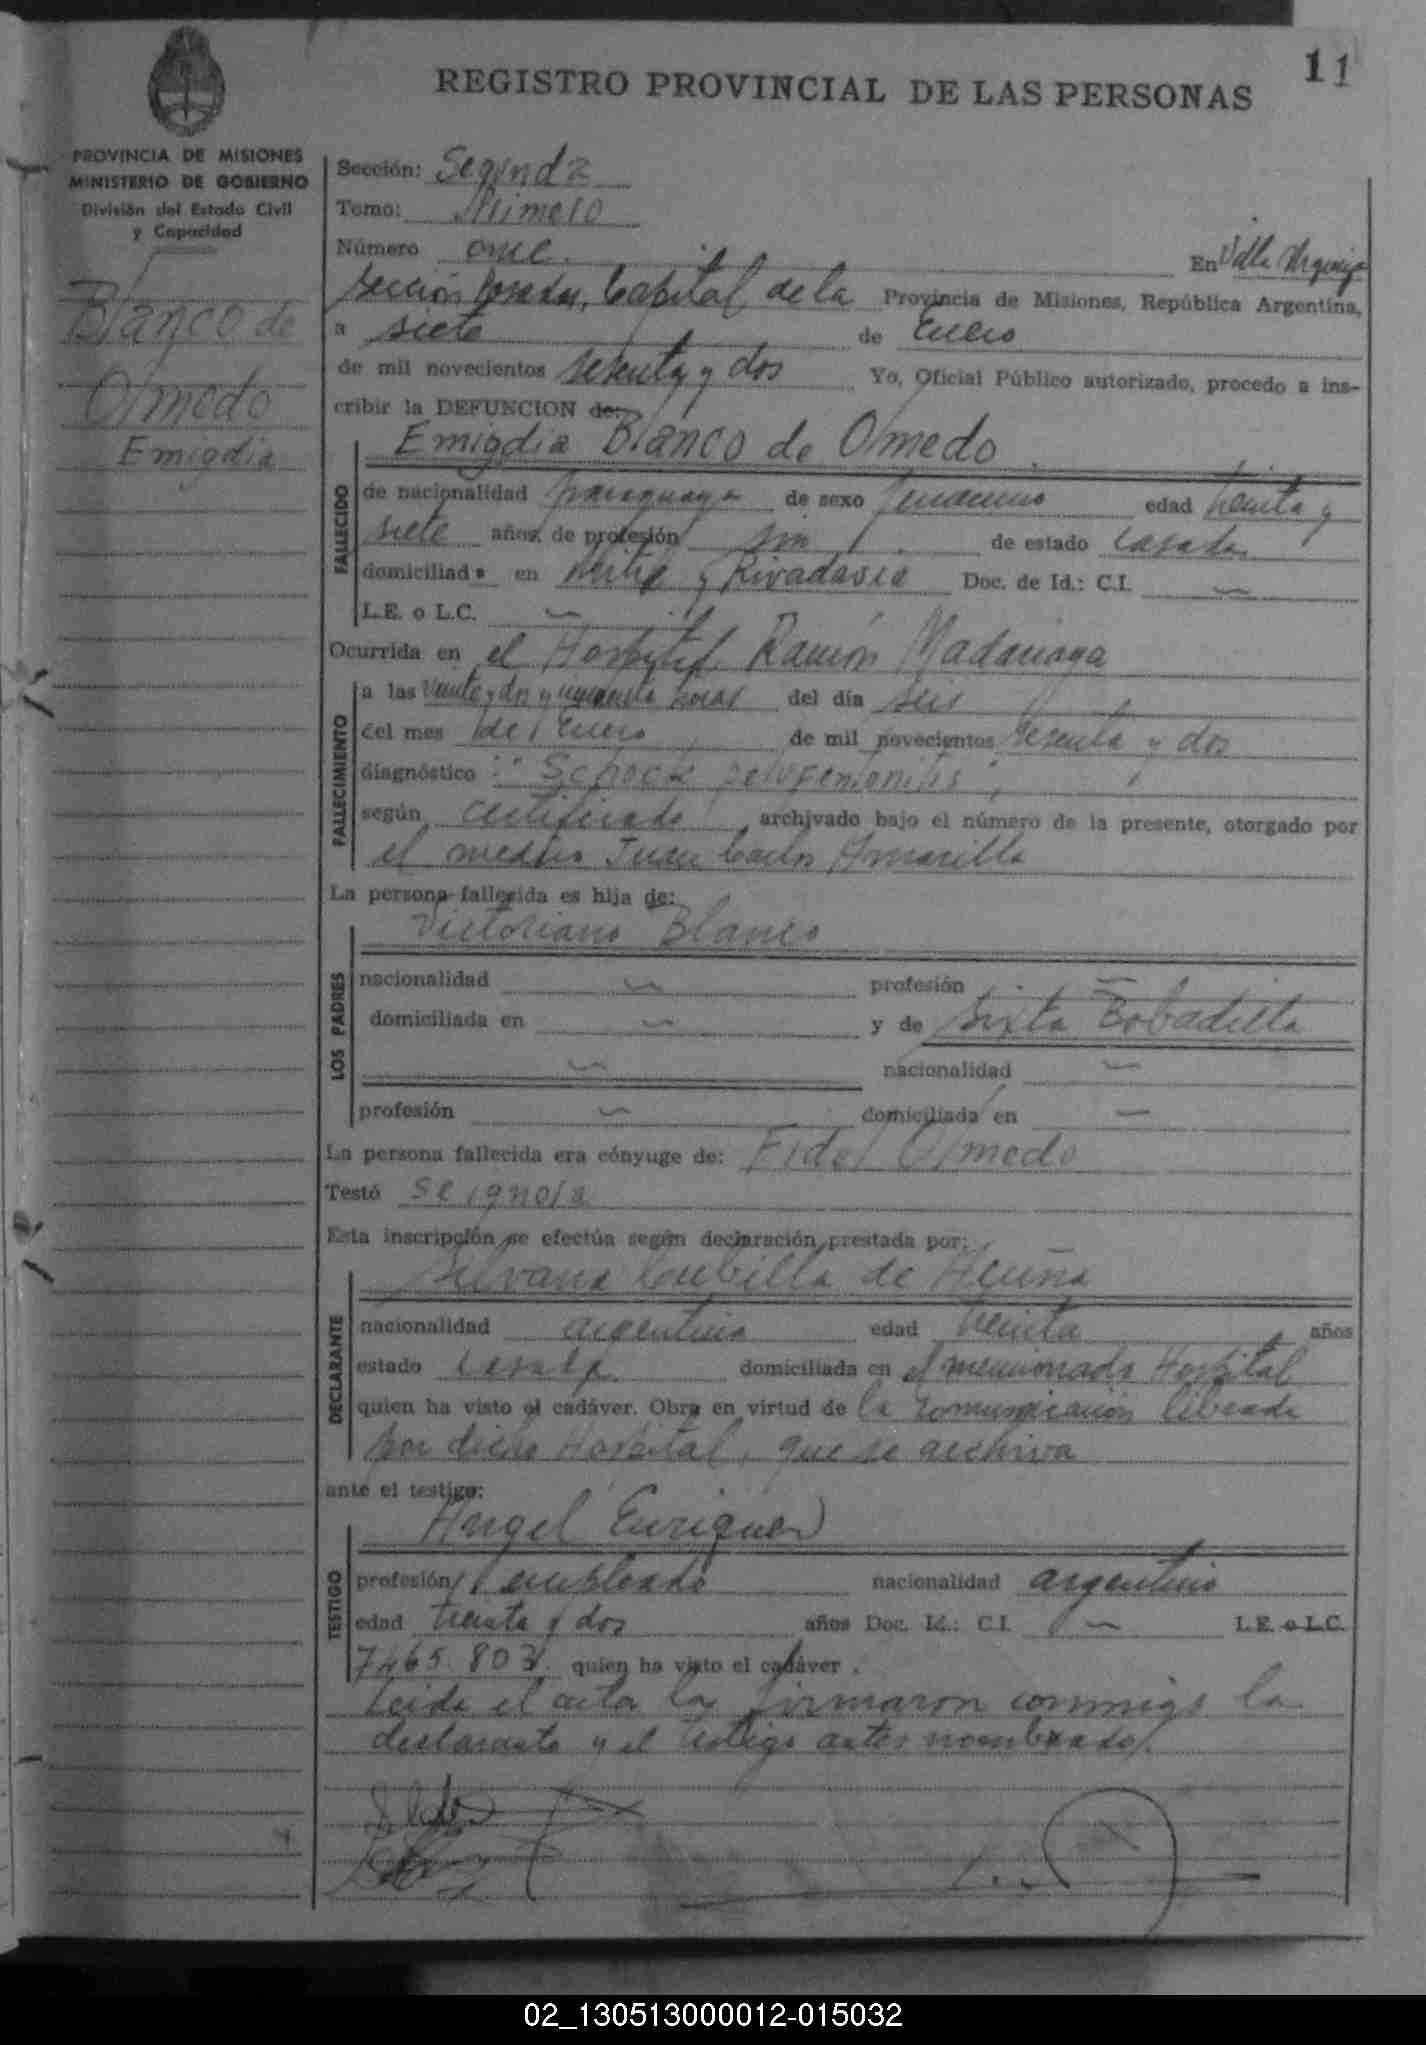 11
REGISTRO PROVINCIAL DE LAS PERSONAS
PROVINCIA DE MISIONES
MINISTERIO DE GOBIERNO
División del Estado Civil
y Capacidad
Blanco de
Olmedo
Emigdia
Sección: Segunda
Tomo: Primero
Número once. En Villa Urquiza
sección Posadas, Capital de la Provincia de Misiones, República Argentina,
a siete de Enero
de mil novecientos sesenta y dos Yo, Oficial Público autorizado, procedo a ins-
cribir la DEFUNCION de:
Emigdia Blanco de Olmedo
FALLECIDO
de nacionalidad paraguaya de sexo femenino edad treinta y
siete años, de profesión sin de estado casada
domiciliada en Mitre y Rivadavia Doc. de Id.: C.I. —
L.E. o L.C. —
Ocurrida en el Hospital Ramón Madariaga
FALLECIMIENTO
a las veinte y dos y horas del día seis
del mes de Enero de mil novecientos sesenta y dos
diagnóstico : "Schock
según certificado archivado bajo el número de la presente, otorgado por
el medico Juan Carlos Amarilla
La persona fallecida es hija de:
LOS PADRES
Victoriano Blanco
nacionalidad — profesión —
domiciliada en — y de Sixta Bobadilla
— nacionalidad —
profesión — domiciliada en —
La persona fallecida era cónyuge de: Fidel Olmedo
Testó se ignora
Esta inscripción se efectúa según declaración prestada por:
DECLARANTE
Silvana Cubilla de Acuña
nacionalidad argentina edad treinta años
estado casada domiciliada en el mencionado Hospital
quien ha visto el cadáver. Obra en virtud de la comunicación librada
por dicho Hospital, que se archiva
ante el testigo:
TESTIGO
Angel Enriquez
profesión empleado nacionalidad argentino
edad treinta y dos años Doc. Id.: C.I. — L.E. o L.C.
7465.803. quien ha visto el cadáver.
Leida el acta la firmaron conmigo la
declarante y el testigo antes nombrado.
02_130513000012-015032